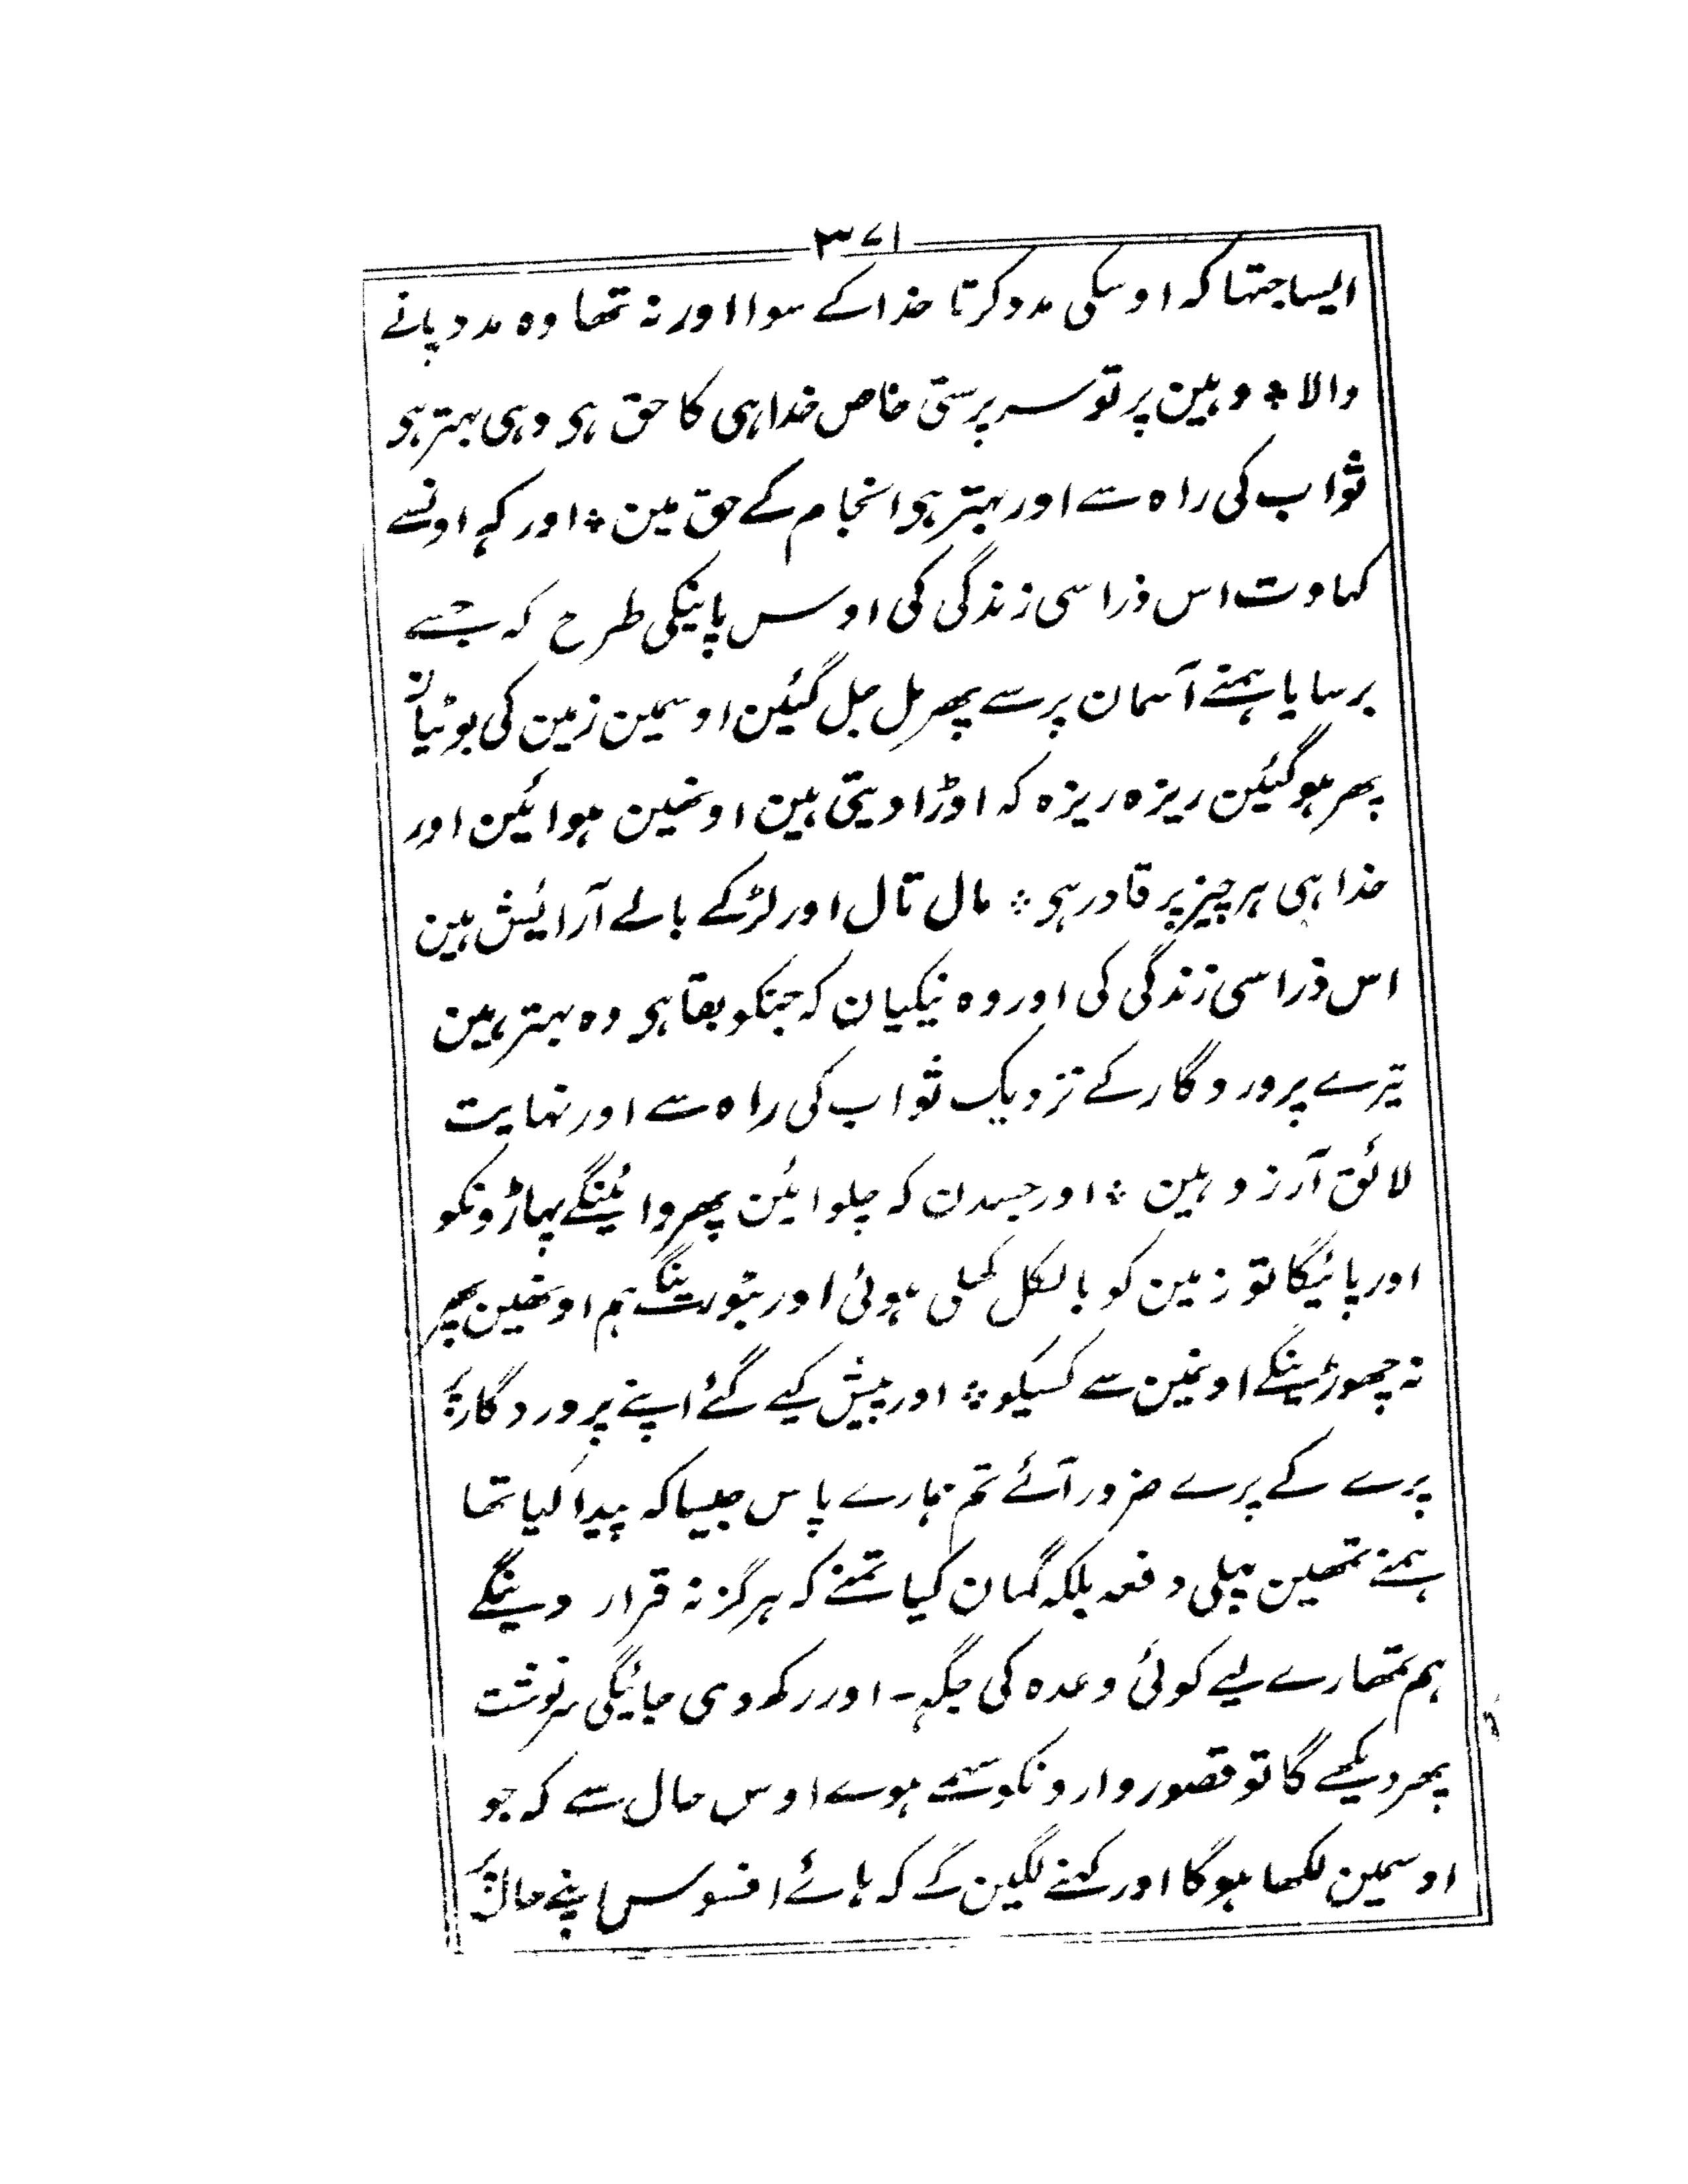 ۳۷۱
ایسا جتھا کہ اوسکی مدد کرتا خدا کے سوا اور نہ تھا وہ مدد پانے
والا ٭ وہین پر تو سرپرستی خاص خدا ہی کا حق ہی وہی بہتر ہی
ثواب کی راہ سے اور بہتر ہی انجام کے حق مین ٭ اور کہہ اونسے
کہاوت اس ذرا سی زندگی کی اوس پانیکی طرح کہ جسے
برسایا ہمنے آسمان پر سے پھر مل جل گئین اوسمین زمین کی بوٹیان
پھر ہو گئین ریزہ ریزہ کہ اوڑا دیتی ہین اونھین ہوائین اور
خدا ہی ہر چیز پر قادر ہی ٭ مال تال اور لڑکے بالے آرائیش ہین
اس ذرا سی زندگی کی اور وہ نیکیان کہ جنکو بقا ہی وہ بہتر ہین
تیرے پروردگار کے نزدیک ثواب کی راہ سے اور نہایت
لائق آرزو ہین ٭ اور جسدن کہ چلوائین پھروائینگے پہاڑونکو
اور پائیگا تو زمین کو بالکل کھلی ہوئی اور بٹورینگے ہم اونھین پھر
نہ چھوڑینگے اونمین سے کسیکو ٭ اور پیش کیے گئے اپنے پروردگار پر
پرے کے پرے ضرور آئے تم ہمارے پاس جیسا کہ پیدا کیا تھا
ہمنے تمھین پہلی دفعہ بلکہ گمان کیا تمنے کہ ہرگز نہ قرار دینگے
ہم تمھارے لیے کوئی وعدہ کی جگہہ ۔ اور رکھ دی جائیگی سرنوشت
پھر دیکھے گا تو قصور وارونکو سہمے ہوے اوس حال سے کہ جو
اوسمین لکھا ہوگا اور کہنے لگین گے کہ ہائے افسوس اپنے حال پر